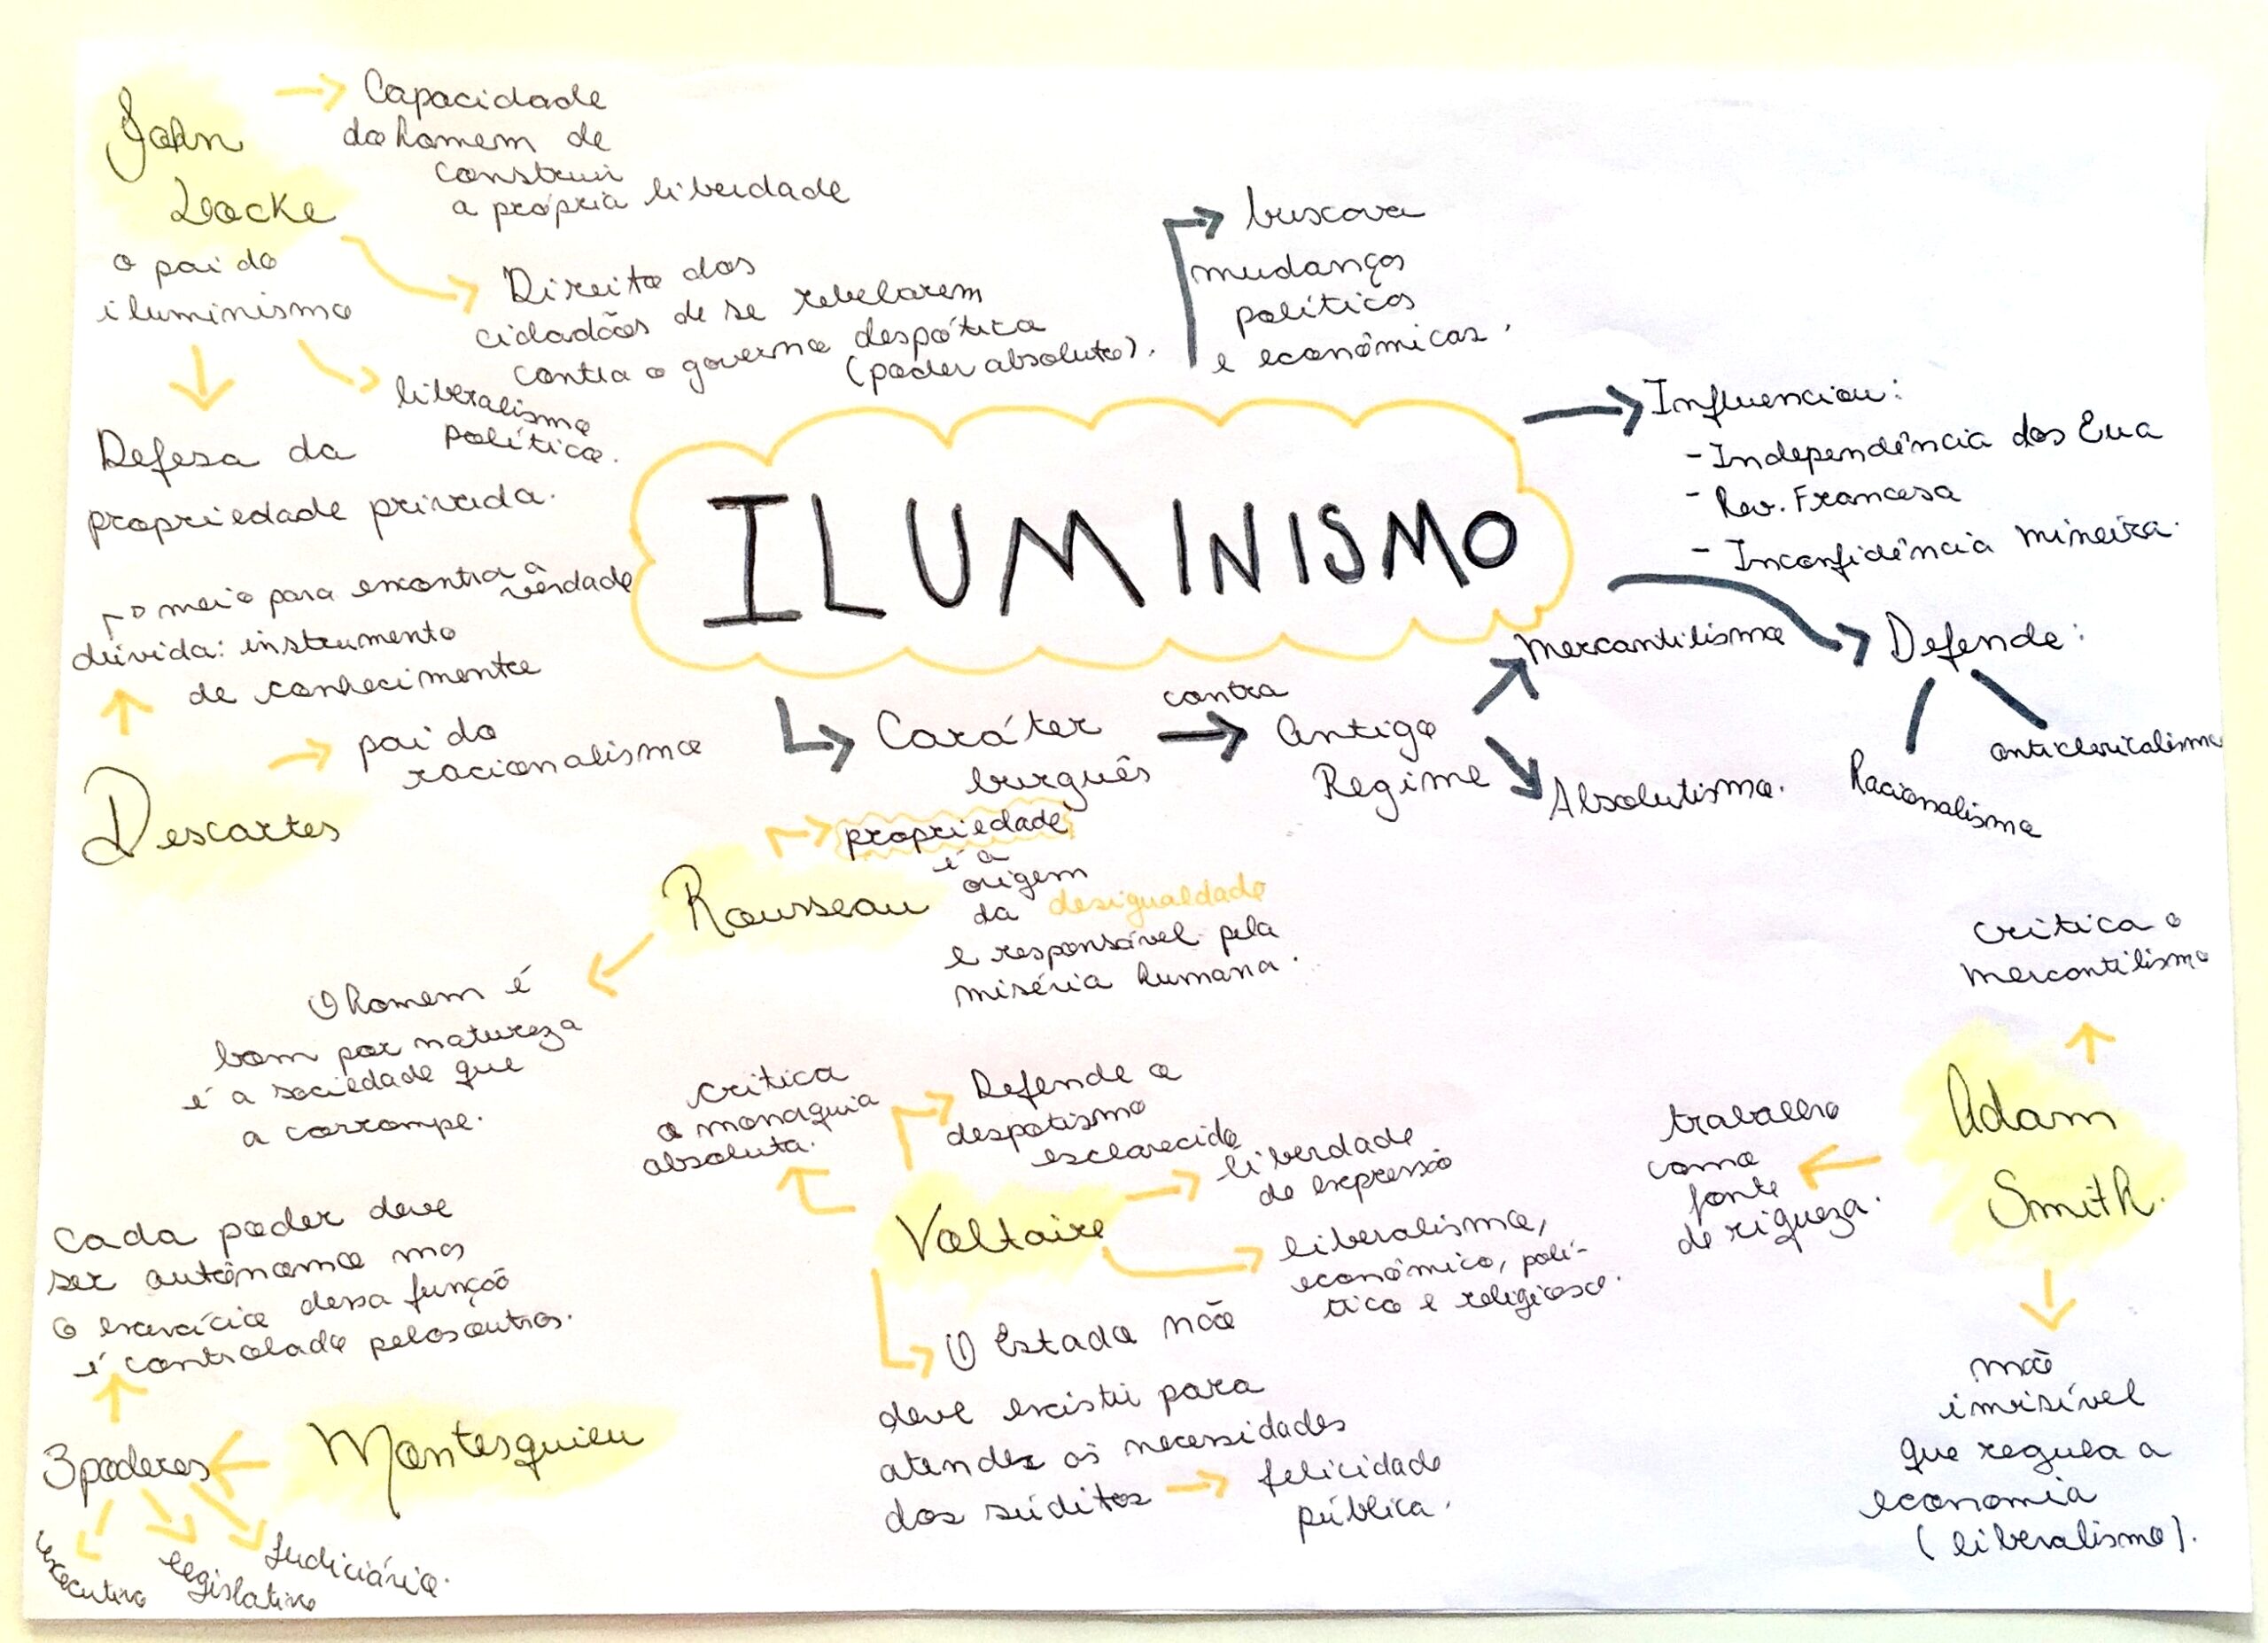 John
Locke
o pai do
iluminismo
Capacidade
do homem de
construir
a própria liberdade
Direito dos
cidadãos de se rebelarem
contra o governo despótico
(poder absoluto).
liberalismo
político.
Defesa da
propriedade privada.
buscava
mudanças
políticas
e econômicas.
ILUMINISMO
Influenciou:
- Independência dos Eua
- Rev. Francesa
- Inconfidência mineira.
Defende:
Racionalismo
anticlericalismo
Caráter
burguês
contra
Antigo
Regime
mercantilismo
Absolutismo.
o meio para encontra a
verdade
dúvida: instrumento
de conhecimento
Descartes
pai do
racionalismo
Rousseau
propriedade
é a
origem
da desigualdade
e responsável pela
miséria humana.
O homem é
bom por natureza
é a sociedade que
a corrompe.
Voltaire
critica
a monarquia
absoluta.
Defende o
despotismo
esclarecido
liberdade
de expressão
liberalismo,
econômico, polí-
tico e religioso.
O Estado não
deve existir para
atender as necessidades
dos súditos
felicidade
pública.
Adam
Smith.
critica o
mercantilismo
trabalho
como
fonte
de riqueza.
mão
invisível
que regula a
economia
(liberalismo).
Montesquieu
3 poderes
Cada poder deve
ser autônomo mas
o exercício dessa função
é controlado pelos outros.
executivo
legislativo
Judiciário.